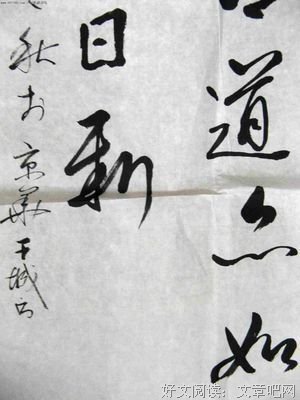 道亦如
日新
秋于京華 城
好文阅读：文章吧网